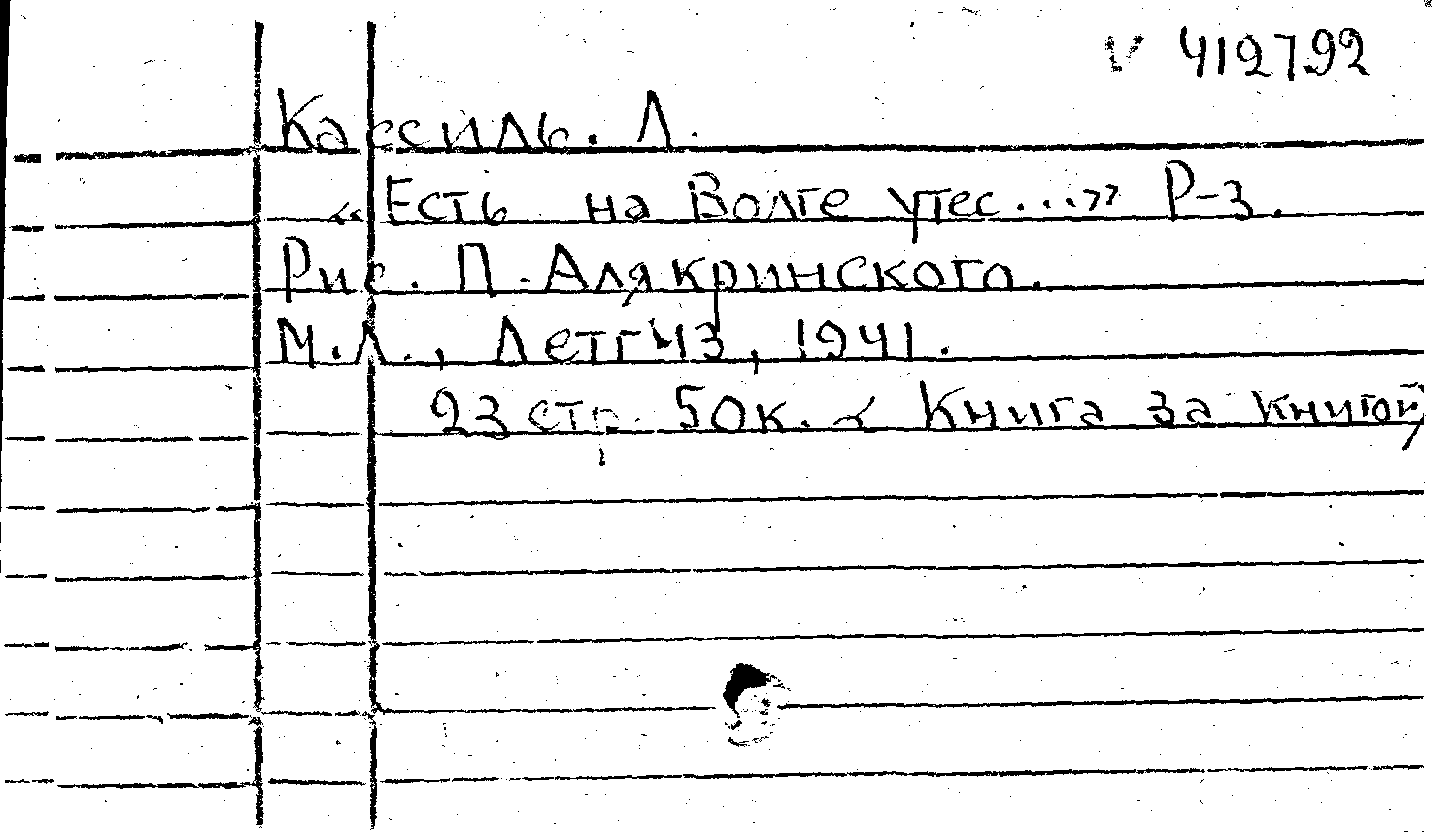 V 412792
Кассиль. Л.
«Есть на Волге утес...» Р-з.
Рис. П. Алякринского.
М.Л., Детгиз, 1941.
23 стр. 50к. < Книга за книгой,